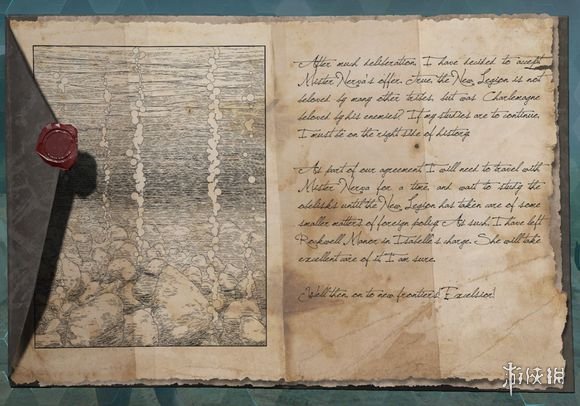 After much deliberation, I have decided to accept
Mister Nerva's offer. True, the New Legion is not
beloved by many other tribes, but was Charlemagne
beloved by his enemies? If my studies are to continue,
I must be on the right side of history.
As part of our agreement I will need to travel with
Mister Nerva for a time, and wait to study the
obelisks until the New Legion has taken care of some
smaller matters of foreign policy. As such, I have left
Rockwell Manor in Isabelle's charge. She will take
excellent care of it I am sure.
Well then, on to new frontiers! Excelsior!
游侠网